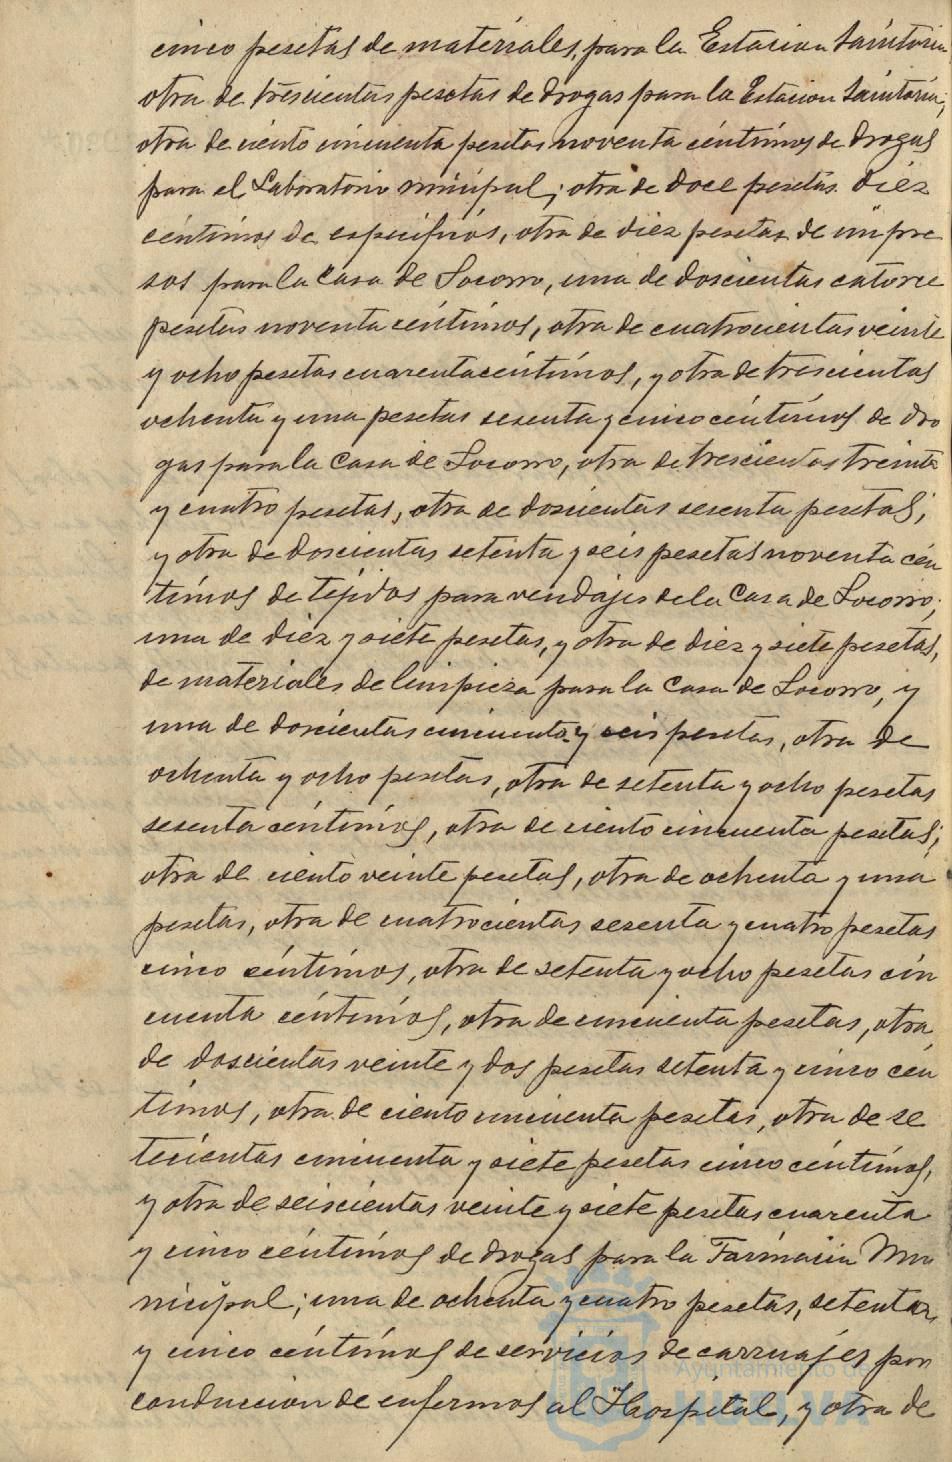 cinco pesetas de materiales, para la Estacion Sanitaria
otra de trescientas pesetas de drogas para la Estacion Sanitaria;
otra de ciento cincuenta pesetas noventa céntimos de drogas
para el Laboratorio municipal; otra de doce pesetas diez
céntimos de especificos, otra de diez pesetas de impre
sos para la Casa de Socorro, una de doscientas catorce
pesetas noventa céntimos, otra de cuatrocientas veinte
y ocho pesetas cuarenta céntimos, y otra de trescientas
ochenta y una pesetas sesenta y cinco céntimos de dro
gas para la Casa de Socorro, otra de trescientas treinta
y cuatro pesetas, otra de doscientas sesenta pesetas,
y otra de doscientas setenta y seis pesetas noventa cén
timos de tejidos para vendajes de la Casa de Socorro;
una de diez y siete pesetas, y otra de diez y siete pesetas,
de materiales de limpieza para la Casa de Socorro, y
una de doscientas cincuenta y seis pesetas, otra de
ochenta y ocho pesetas, otra de setenta y ocho pesetas
sesenta céntimos, otra de ciento cincuenta pesetas;
otra de ciento veinte pesetas, otra de ochenta y una
pesetas, otra de cuatrocientas sesenta y cuatro pesetas
cinco céntimos, otra de setenta y ocho pesetas cin
cuenta céntimos, otra de cincuenta pesetas, otra
de doscientas veinte y dos pesetas setenta y cinco cén
timos, otra de ciento cincuenta pesetas, otra de se
tecientas cincuenta y siete pesetas cinco céntimos,
y otra de seiscientas veinte y siete pesetas cuarenta
y cinco céntimos de drogas para la Farmacia Mu
nicipal; una de ochenta y cuatro pesetas, setenta
y cinco céntimos de servicios de carruajes por
conduccion de enfermos al Hospital, y otra de
Ayuntamiento de
HUELVA